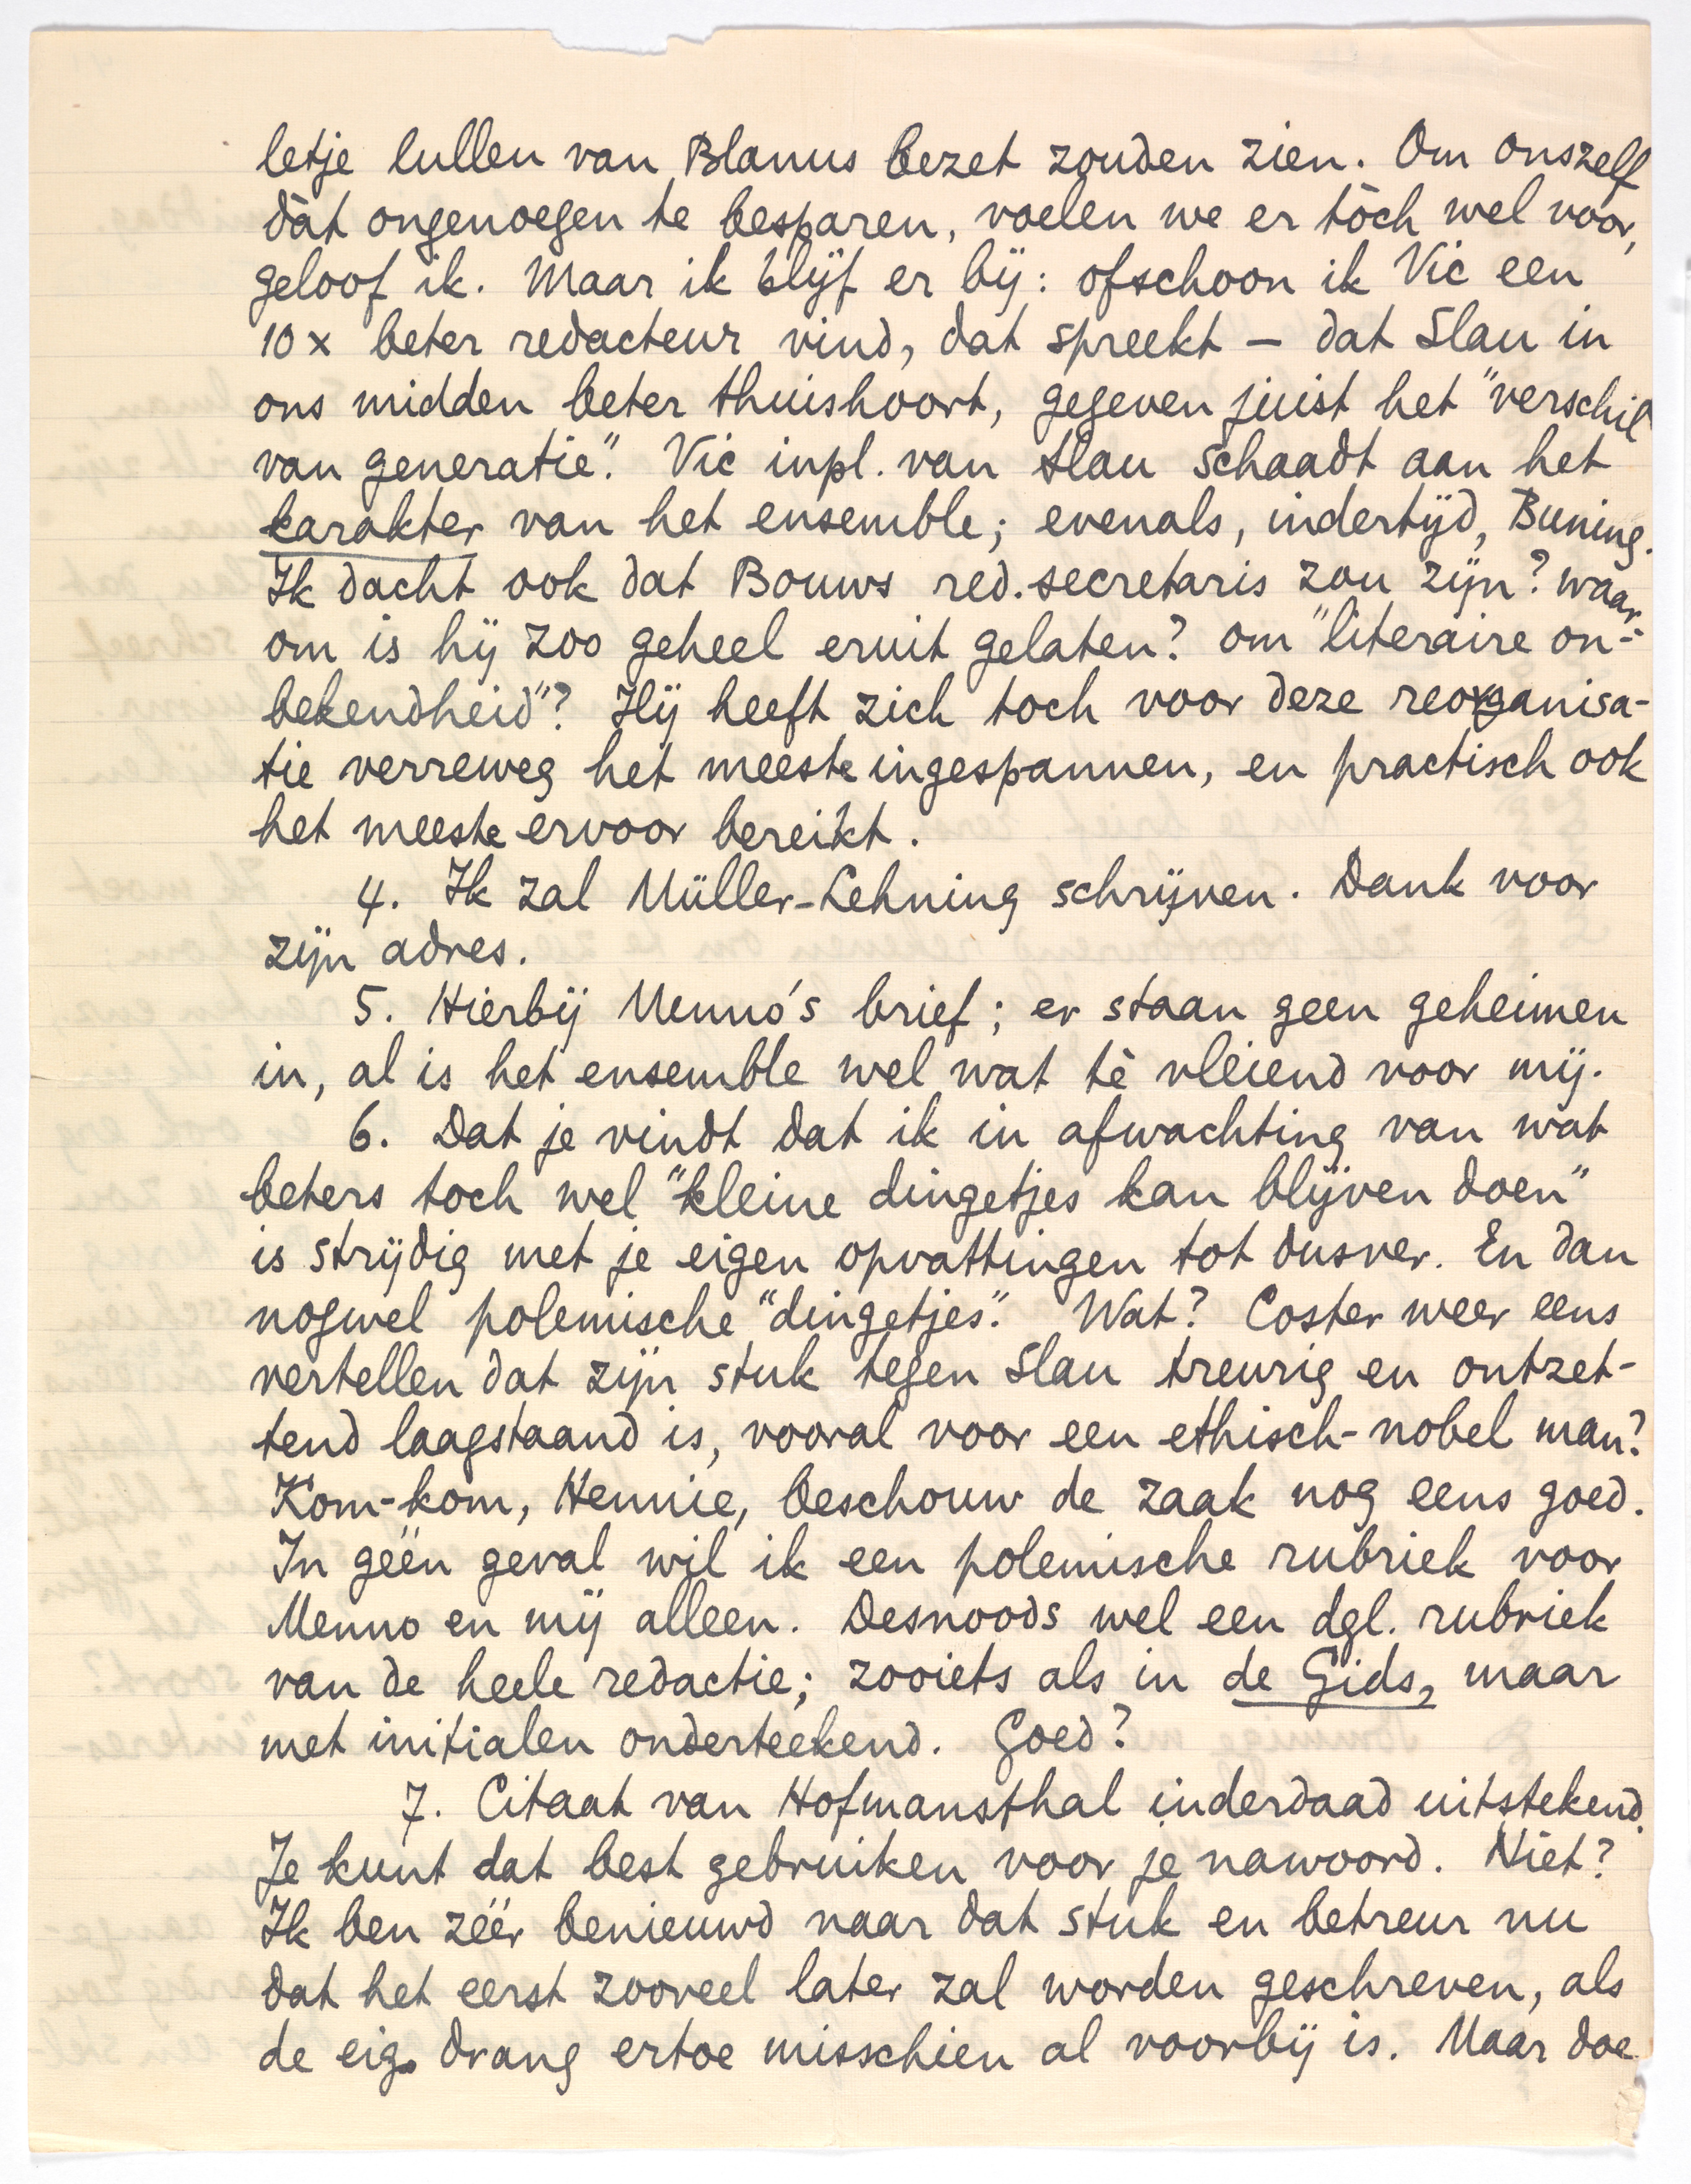 letje lullen van Blanus bezet zouden zien. Om onszelf
dàt ongenoegen te besparen, voelen we er tòch wel voor,
geloof ik. Maar ik blijf er bij: ofschoon ik Vic een
10 x beter redacteur vind, dat spreekt — dat Slau in
ons midden beter thuishoort, gegeven juist het "verschil
van generatie". Vic inpl. van Slau schaadt aan het
karakter van het ensemble; evenals, indertijd, Buning.
Ik dacht ook dat Bouws red. secretaris zou zijn? waar-
om is hij zoo geheel eruit gelaten? om "literaire on-
bekendheid"? Hij heeft zich toch voor deze reorganisa-
tie verreweg het meeste ingespannen, en practisch ook
het meeste ervoor bereikt.
4. Ik zal Müller-Lehning schrijven. Dank voor
zijn adres.
5. Hierbij Menno's brief; er staan geen geheimen
in, al is het ensemble wel wat tè vleiend voor mij.
6. Dat je vindt dat ik in afwachting van wat
beters toch wel "kleine dingetjes kan blijven doen"
is strijdig met je eigen opvattingen tot dusver. En dan
nogwel polemische "dingetjes". Wat? Coster weer eens
vertellen dat zijn stuk tegen Slau treurig en ontzet-
tend laagstaand is, vooral voor een ethisch-nobel man?
Kom-kom, Hennie, beschouw de zaak nog eens goed.
In géén geval wil ik een polemische rubriek voor
Menno en mij alleen. Desnoods wel een dgl. rubriek
van de heele redactie; zooiets als in de Gids, maar
met initialen onderteekend. Goed?
7. Citaat van Hofmansthal inderdaad uitstekend.
Je kunt dat best gebruiken voor je nawoord. Niet?
Ik ben zéér benieuwd naar dat stuk en betreur nu
dat het eerst zooveel later zal worden geschreven, als
de eig. drang ertoe misschien al voorbij is. Maar doe